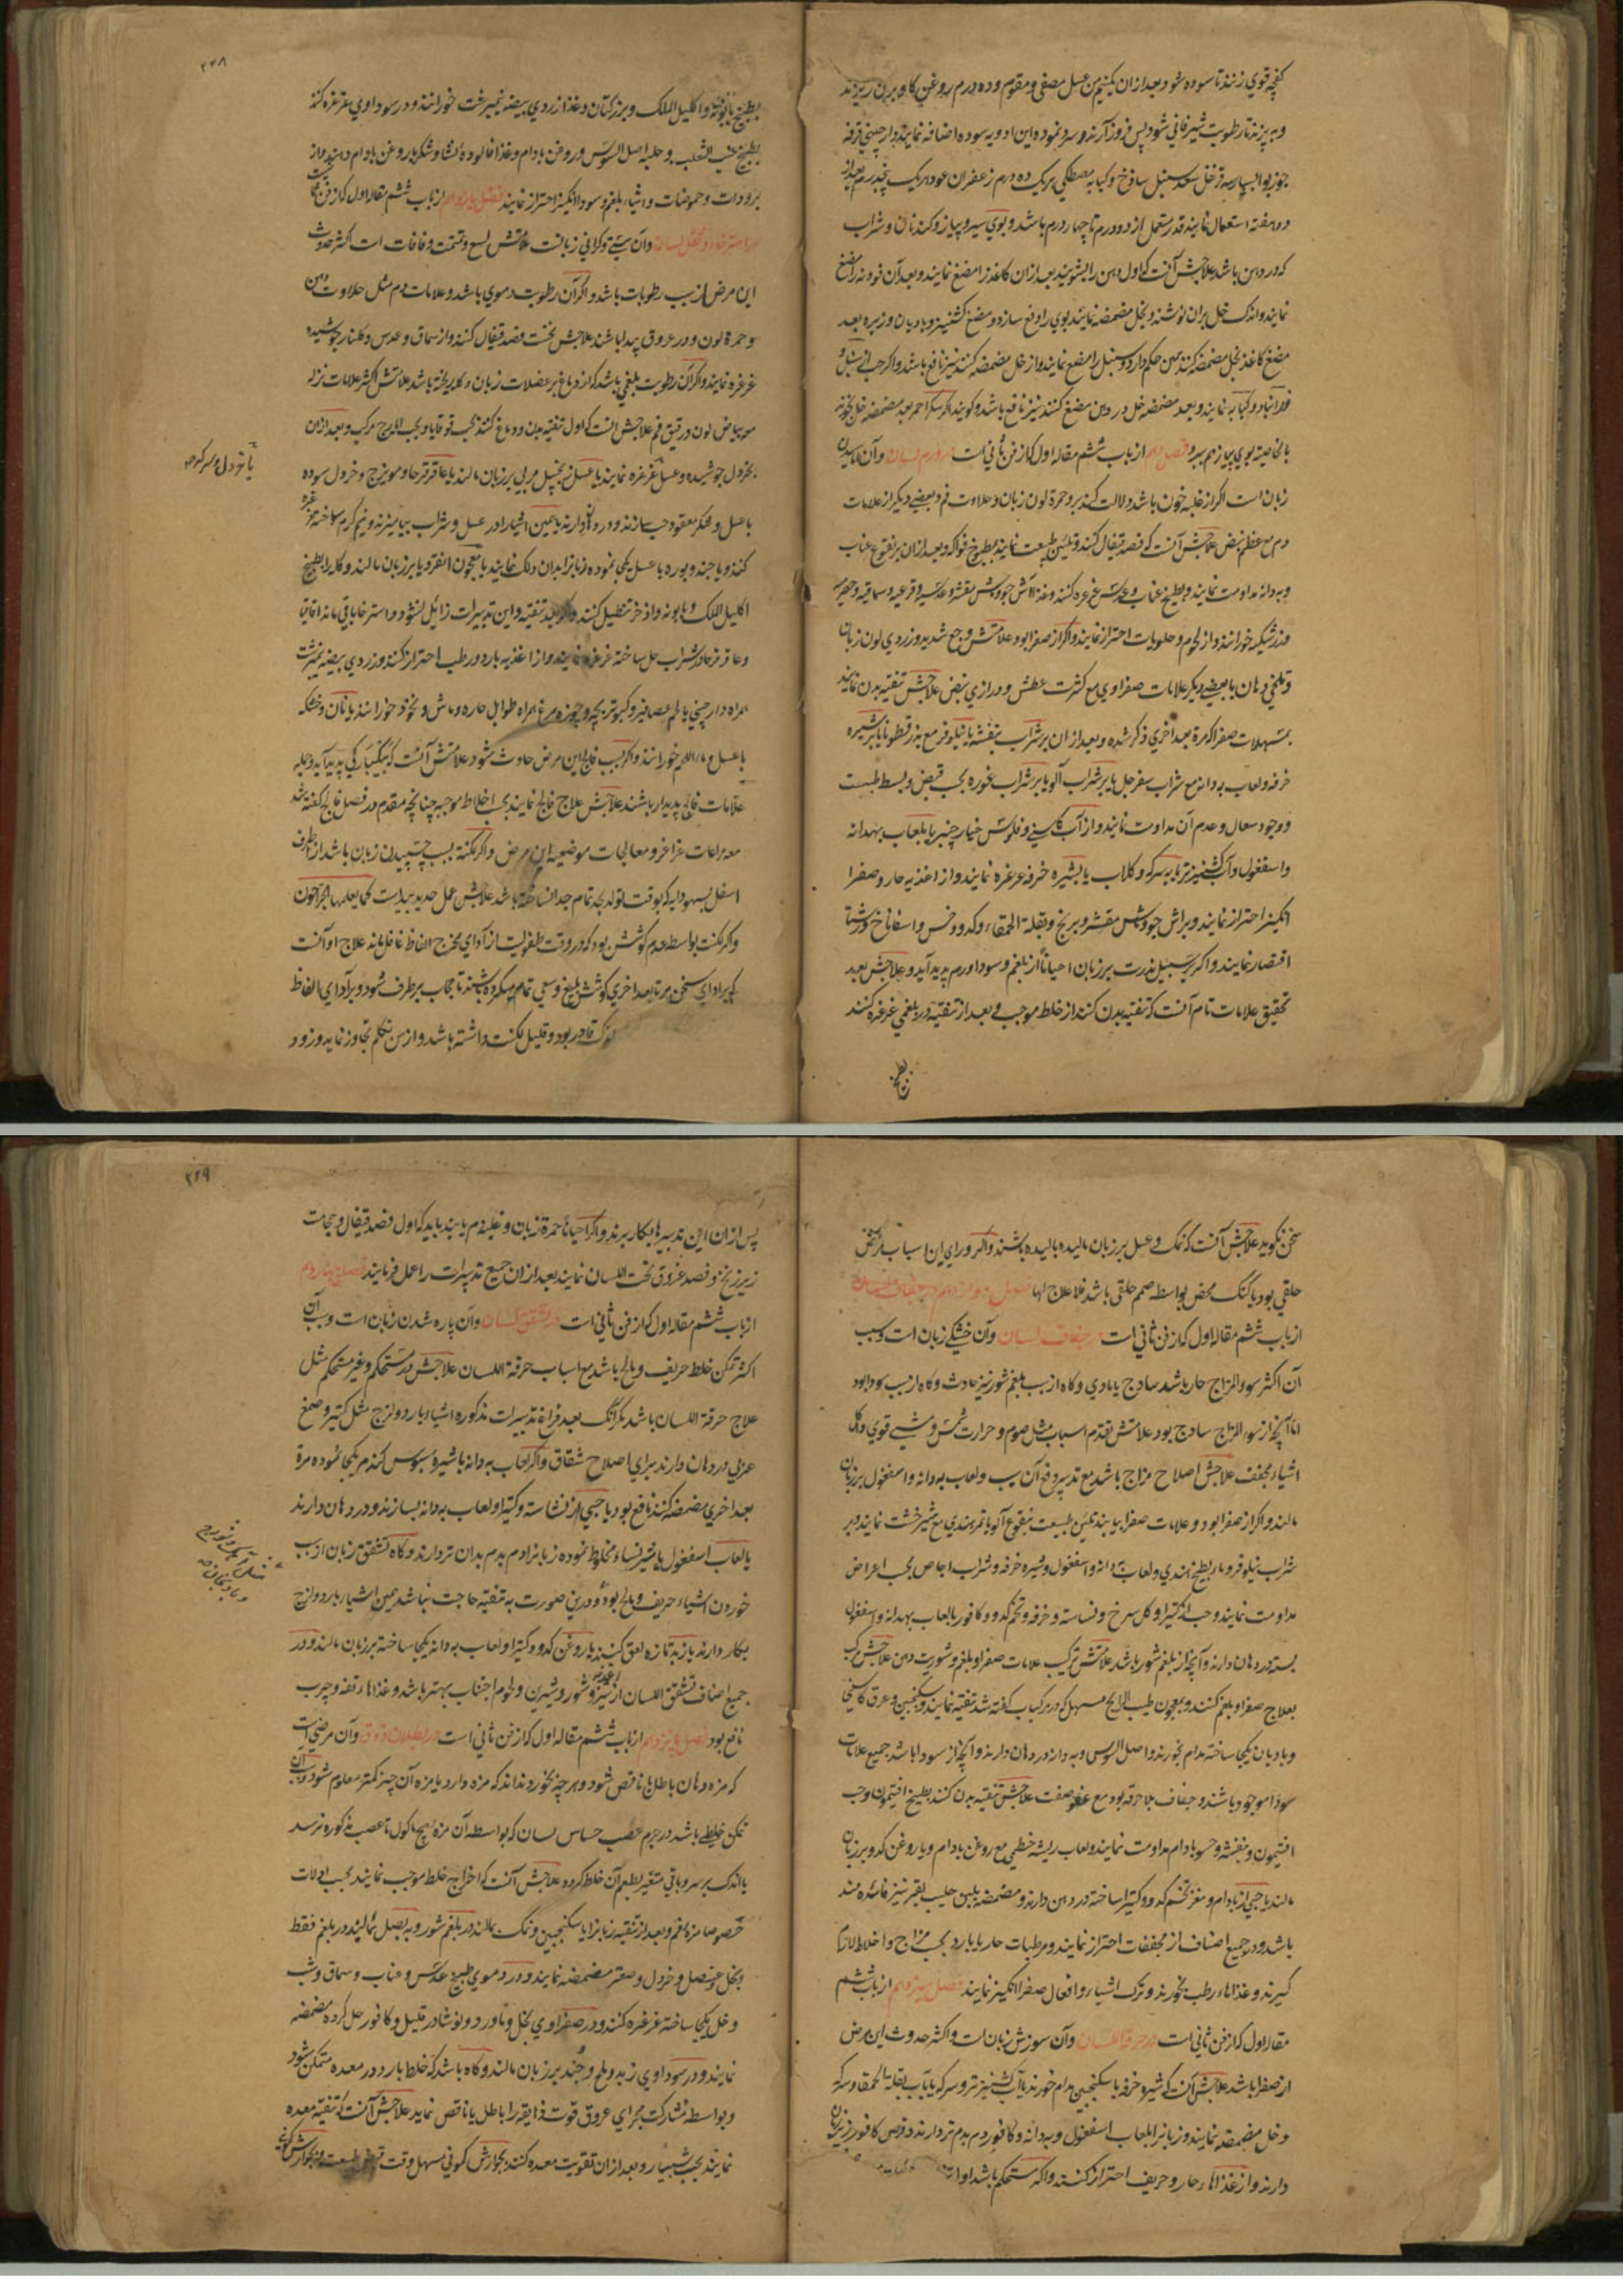 کفچه قوی زنند تا سوده شود بعد ازان یکنیم من عسل مصفی و مقوم و ده درم روغن کاو بران ریزند
و به پزند تا رطوبت شیر فانی شود پس فرود آرند و سرد نموده این ادویه سوده اضافه نمایند دارچینی قرفه
جوز بوا بسباسه قرنفل سعد سنبل ساذج و کبابه مصطکی هر یک ده درم زعفران عود هریک پنجدرم بعد از
دو هفته استعمال نمایند قدر مستعمل از دو درم تا چهار درم باشد و بوی سیر و پیاز و کندنا و شراب
که در دهن باشد علاجش آنست که اول دهن را بشویند بعد ازان کاغذ را مضغ نمایند و بعد آن فودنه را مضغ
نمایند و اندک خل بران نوشند و بخل مضمضه نمایند بوی را دفع سازد و مضغ کشنیز و بادیان و زیره بعد
مضغ کاغذ بخل مضمضه کنند همین حکم دارد و سنبل را مضغ نمایند و از خل مضمضه کنند نیز نافع باشد و اگر حب از سنبل و
و کبابه نمایند و بعد مضمضه خل در دهن مضغ کنند نیز نافع باشد و گویند اگر سکر احمر بعد مضمضه خل بخورند
بالخاصیه بوی پیاز هم ببرد فصل دهم از باب ششم مقاله اول که از فن ثانی است در ورم لسان و آن آماسیدن
زبان است اگر از غلبه خون باشد دلالت کند برو حمرة لون زبان و حلاوت فم و بعضی دیگر از علامات
دم مع عظم نبض علاجش آنست که فصد قیفال کنند و تلیین طبیعت نمایند بمطبوخ فواکه و بعد ازان بر نقوع عناب
و بهدانه مداومت نمایند و بطبیخ عناب و عدس غرغره کنند و غذا آش جو و ماش مقشر و عدسیه و قرعیه و سماقیه و حصرمیه
و زرشکیه خورانند و از لحوم و حلویات احتراز نمایند و اگر از صفرا بود علامتش وجع شدید و زردی لون زبان
و تلخی دهان با بعضی دیگر علامات صفراوی مع کثرت عطش و درازی نبض علاجش تنقیه بدن نمایند
بمسهلات صفرا که مرة بعد اخری ذکر شده و بعد ازان بر شراب بنفشه یا نیلوفر مع بزرقطونا یا بر شیره
خرفه و لعاب بهدانه مع شراب سفرجل یا بر شراب آلو یا بر شراب غوره بحسب قبض و بسط طبیعت
و وجود سعال و عدم آن مداومت نمایند و از آب کاسنی و فلوس خیار چنبر یا بلعاب بهدانه
و اسفغول و آب کشنیز تر یا بسرکه و گلاب یا بشیره خرفه غرغره نمایند و از اغذیه حار و صفرا
انگیز احتراز نمایند و بر آش جو و ماش مقشر و برنج و بقلة الحمقاء و کدو و خس و اسفاناخ و رشتا
اقتصار نمایند و اگر بر سبیل ندرت بر زبان احیاناً از بلغم و سودا ورم پدید آید و علاجش بعد
تحقیق علامات تام آنست که تنقیه بدن کنند از خلط موجب و بعد از تنقیه در بلغمی غرغره کنند
بطبیخ
۲۲۸
بطبیخ بابونه و اکلیل الملک و بزر کتان و غذا زردی بیضه نیمبرشت خورانند و در سوداوی غرغره کنند
بطبیخ عنب الثعلب و حلبه اصل السوس و روغن بادام و غذا فالوده نشا و شکر با روغن بادام دهند و از
برودات و حموضات و اشیاء بلغم و سودا انگیز احتراز نمایند فصل یازدهم از باب ششم مقاله اول که از فن ثانی است
در استرخاء و ثقل لسان و آن سستی و گرانی زبانست علامتش لسع و تمتمت و فافات است اکثر حدوث
این مرض از سبب رطوبات باشد و اگر آن رطوبت دموی باشد و علامات دم مثل حلاوت دهن
و حمرة لون و درور عروق پیدا باشند علاجش نخست فصد قیفال کنند و از سماق و عدس و گلنار جوشیده
غرغره نمایند و اگر آن رطوبت بلغمی باشد که از دماغ بر عضلات زبان و کام ریخته باشد علامتش اکثر علامات نزله
مع بیاض لون و ریق فم علاجش انست که اول تنقیه بدن و دماغ کنند بحب قوقایا و بحب ایارج مرکب و بعد ازان
بخردل جوشیده و عسل غرغره نمایند یا عسل زنجبیل مربی بر زبان مالند یا عاقرقرحا و مویزج و خردل سوده
یا خردل و سرکه صح
با عسل و شکر معقود حب سازند و در دهان دارند یا همین اشیا را در عسل و شراب بیامیزند و نیم گرم ساخته غرغره
کنند و یا جند و بوره با عسل یکجا نموده زبانرا بدان دلک نمایند یا معجون انقردیا بر زبان مالند و گاه را بطبیخ
اکلیل الملک و بابونه و اذخر تنطیل کنند و اگر بعد تنقیه و این تدبیرات زائل نشود و استرخا باقی ماند اقاقیا
و عاقرقرحا در شراب حل ساخته غرغره نمایند و از اغذیه بارد و رطب احتراز کنند و زردی بیضه نیمبرشت
همراه دارچینی یا لحم عصافیر و کبوتر بچه و چوزه مرغ همراه طوابل حاره و ماش و نخود خورانند یا نان خشکه
با عسل و ماء اللحم خورانند و اگر بسبب فالج این مرض حادث شود علامتش آنست که بیکبارگی پدید آید و جمله
علامات فالج پدیدار باشند علاجش علاج فالج نمایند بحسب اخلاط موجبه چنانچه مقدم در فصل فالج گفته شد
مع مراعات غراغر و معالجات موضعیه این مرض و اگر لکنت بسبب چسپیدن زبان باشد از طرف
اسفل بسهو دایه که بوقت تولد بجد تمام جدا نساخته باشد علاجش عمل حدید بیداست کما یعلمها الجراحون
و اگر لکنت بواسطه عدم کوشش بود که در وقت طفولیت از ادای مخرج الفاظ غافل ماند علاج او آنست
که بر ادای سخن مرة بعد اخری کوشش بلیغ و سعی تمام میکرده باشند تا حجاب برطرف شود و بر ادای الفاظ
قادر بود و قلیل لکنت داشته باشد و از سن تکلم تجاوز نماید و زود
سخن نگوید علاجش آنست که نمک و عسل بر زبان مالیده بالیده باشند و اگر ورای این اسباب مرض
خلقی بود یا گنگ محض بواسطه صمم خلقی باشد فلا علاج لها فصل دوازدهم در جفاف لسان
از باب ششم مقاله اول که از فن ثانی است در جفاف لسان و آن خشکی زبان است و سبب
آن اکثر سوء المزاج حار باشد ساذج یا مادی و گاه از سبب بلغم شور نیز حادث و گاه از سبب سودا بود
اما آنچه از سوء المزاج ساذج بود علامتش تقدم اسباب مثل صوم و حرارت شمس و مشی قوی و اکل
اشیاء مجفف علاجش اصلاح مزاج باشد مع تدبیر دفع آن سبب و لعاب بهدانه و اسفغول بر زبان
مالند و اگر از صفرا بود و علامات صفرا بیابند تلیین طبیعت بنقوع آلو یا تمرهندی مع شیرخشت نمایند و بر
شراب نیلوفر و ماء بطیخ هندی و لعاب بهدانه و اسفغول و شیره خرفه و شراب اجاص بحسب اعراض
مداومت نمایند و حب از کتیرا و گل سرخ و نشاسته و خرفه و تخم کدو و کافور بالعاب بهدانه و اسفغول
بسته در دهان دارند و آنچه از بلغم شور باشد علامتش ترکیب علامات صفرا و بلغم و شوریت دهن علاجش مرکب
بعلاج صفرا و بلغم کنند و بمعجون طیب الرایح مسهل که در مرکبات گفته شد تنقیه نمایند و سکنجبین و عرق کاسنی
و بادیان یکجا ساخته مدام بخورند و اصل السوس و بهدانه در دهان دارند و آنچه از سودا باشد جمیع علامات
سودا موجود باشند و جفاف بلا حرقه بود مع عفوصت علاجش تنقیه بدن کنند بطبیخ افتیمون و حب
افتیمون و بنفشه و حسو بادام مداومت نمایند و لعاب ریشه خطمی مع روغن بادام و یا روغن کدو بر زبان
مالند یا حبی از بادام و مغز تخم کدو و کتیرا ساخته در دهن دارند و مضمضه بلبن حلیب بقر نیز فائده مند
باشد و در جمیع اصناف از مجففات احتراز نمایند و مرطبات حار یا بارد بحسب مزاج و اخلاط لازم
گیرند و غذاهاء رطب بخورند و ترک اشیاء و افعال صفرا انگیز نمایند فصل سیزدهم از باب ششم
مقاله اول که از فن ثانی است در حرقة اللسان و آن سوزش زبان است و اکثر حدوث این مرض
از صفرا باشد علاجش آنست که شیره خرفه با سکنجبین مدام خورند یا آب کشنیز تر و سرکه یا بآب بقلة الحمقا و سرکه
و خل مضمضه نمایند و زبانرا بلعاب اسفغول و بهدانه و کافور دم بدم تر دارند و قرص کافور زیر زبان
دارند و از غذاهاء حار و حریف احتراز کنند و اگر مستحکم باشد اولا
۲۲۹
پس ازان این تدبیرها بکار برند و اگر احیانا حمرة زبان و غلبه دم یابند باید که اول فصد قیفال و حجامت
زیر زنخ و فصد عروق تحت اللسان نمایند بعد ازان جمیع تدبیرات را عمل فرمایند فصل چهاردهم
از باب ششم مقاله اول که از فن ثانی است در تشقق لسان و آن پاره شدن زبان است و سبب آن
اکثر تمکن خلط حریف و مالح باشد مع اسباب حرقة اللسان علاجش در مستحکم و غیر مستحکم مثل
علاج حرقة اللسان باشد مگر آنکه بعد فراغ تدبیرات مذکوره اشیاء بارد و لزج مثل کتیرا و صمغ
عربی در دهان دارند برای اصلاح شقاق و اگر لعاب بهدانه با شیره سبوس گندم یکجا نموده مرة
بعد اخری مضمضه کنند نافع بود یا حبی از نشاسته و کتیرا و لعاب بهدانه بسازند و در دهان دارند
یا لعاب اسفغول با شیر نساء مخلوط نموده زبانرا دم بدم بدان تر دارند و گاه تشقق زبان از سبب
خوردن اشیاء حریف و مالح بود و درین صورت به تنقیه حاجت نباشد همین اشیاء بارد و لزج
بکار دارند یا زبد تازه لعق کنند یا روغن کدو و کتیرا و لعاب بهدانه یکجا ساخته بر زبان مالند و در
جمیع اصناف تشقق اللسان از اغذیه تیز و شور و شیرین و لحوم اجتناب بهتر باشد و غذاها تفه و چرب
نافع بود فصل پانزدهم از باب ششم مقاله اول که از فن ثانی است در بطلان ذوق و آن مرضی است
که مزه دهان باطل یا ناقص شود و هر چه بخورد نداند که مزه دارد یا مزه آن چیز کمتر معلوم شود و سبب آن
تمکن خلطی باشد در جرم عصب حساس لسان که بواسطه آن مزه هیچ ماکول تا عصب مذکوره نرسد
یا اندک برسد و باقی متغیر بطعم آن خلط گردد علاجش آنست که اخراج خلط موجب نمایند بحسب دلالت
خصوصا مزه فم و بعد از تنقیه زبانرا با سکنجبین و نمک بمالند در بلغم شور و به بصل بمالند در بلغم فقط
و بخل عنصل و خردل و صعتر مضمضه نمایند و در دموی طبیخ عدس و عناب و سماق و شب
و خل یکجا ساخته غرغره کنند و در صفراوی بخل و ماورد و نوشادر قلیل و کافور حل کرده مضمضه
نمایند و در سوداوی زبد و ملح و جند بر زبان مالند و گاه باشد که خلط بارد در معده متمکن شود
و بواسطه مشارکت مجرای عروق قوت ذایقه را باطل یا ناقص نماید علاجش آنست که تنقیه معده
نمایند بحب شبیار و بعد ازان تقویت معده کنند بجوارش کمونی مسهل وقت قبض طبیعت و بجوارش کمونی